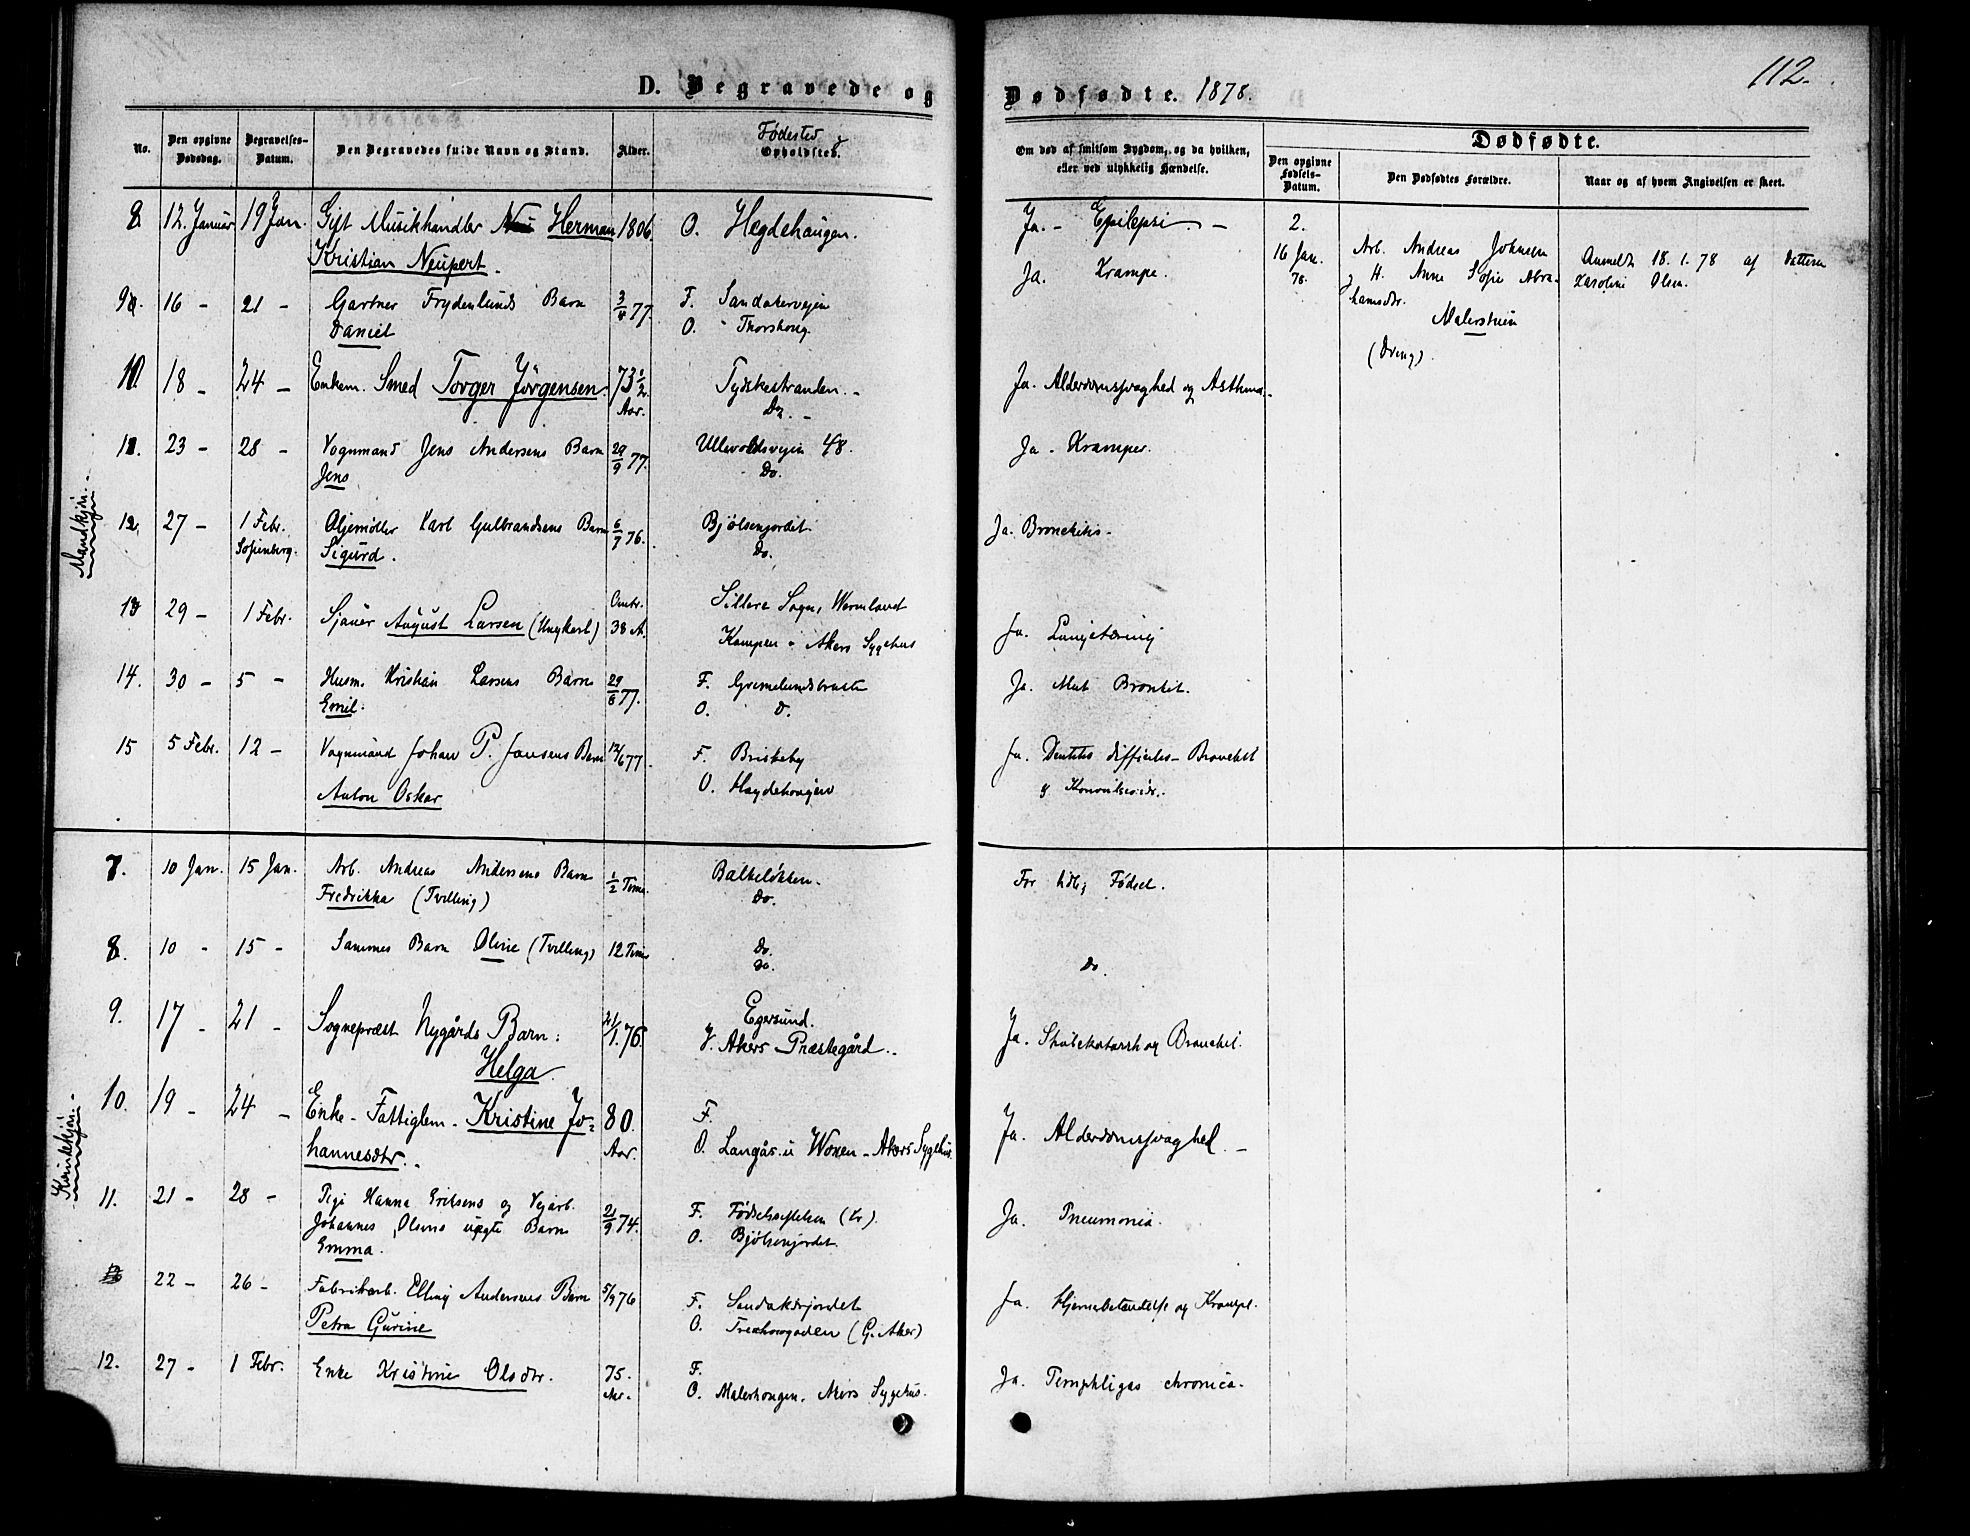 112.
D. Begravede og Dødfødte. 1878.
No. Den opgivne Dødsdag. Begravelses-Datum. Den Begravedes fulde Navn og Stand. Alder. Fødested & Opholdsted. Om død af smitsom Sygdom, og da hvilken, eller ved ulykkelig Hændelse.
Dødfødte.
Den opgivne Fødsels-Datum. Den Dødfødtes Forældre. Naar og af hvem Angivelsen er skeet.
Mandkjön.
8. 12. Januar 19 Jan. Gift Musikhandler Herman 1806. O. Hegdehaugen. Ja. - Epilepsi. -
Kristian Neupert.
2.
16 Jan. 78. Arb. Andreas Johnsen
& H. Anne Sofie Abra-
hamsdtr.
Malerstuen
(Dreng).
Anmeldt 18.1.78 af Datteren
Karoline Olsen.
9. 16 - 21 - Gartner Frydenlunds Barn 3/4 77. F. Sandakervejen Ja. Krampe.
Daniel O. Thorshoug.
10. 18 - 24 - Enkem. Smed Torger Jörgensen. 73 1/2 Aar. Tydskestranden. - Ja. Alderdomssvaghed og Asthma. -
Do. -
11. 23 - 28 - Vognmand Jens Andersens Barn 29/9 77. Ullevoldsvejen 48. Ja. Kramper.
Jens Do.
12. 27 - 1 Febr. Oljemöller Karl Gulbrandsens Barn 6/7 76. Bjölsenjordet Ja. Bronchitis -
Sofienberg. Sigurd. Do.
13 29 - 1 Febr. Sjauer August Larsen (Ungkarl) Omtr. 38 A. Sillere Sogn, Wermland Ja. Lungetæring
Kampen - Akers Sygehus
14. 30 - 5 - Husm. Kristian Larsens Barn 29/8 77. F. Grimelundsbraaten Ja. Akut Bronkit.
Emil. O. D.
15 5 Febr. 12 - Vognmand Johan P. Jansens Barn 12/6 77. F. Briskeby Ja. Dentitio difficilis - Bronchit
Anton Oskar O. Hægdehougen & Konvulsioner.
Kvindekjön.
7. 10 Jan. 15 Jan. Arb. Andreas Andersens Barn 1/2 Time. Balkeløkken. For tidlig Födsel.
Fredrikka (Tvilling) Do.
8. 10 - 15 - Sammes Barn Oline (Tvilling) 12 Timer Do. Do.
Do.
9. 17 - 21 - Sognepræst Nygårds Barn: 21/1 76. Egersund. Ja. Strubekatarrh og Bronchit.
Helga. V. Akers Præstegård. -
10. 19 - 24 - Enke - Fattiglem - Kristine Jo- 80. F. Ja. Alderdomssvaghed. -
hannesdtr. - Aar. O. Langås u. Woxen - Akers Sygehus.
11. 21 - 28 - Pige Hanna Eriksens og Vejarb. 21/9 74. F. Fødselsstiftelsen (Kr). Ja. Pneumonia.
Johannes Olsens uægte Barn O. Bjölsenjordet.
Emma.
22 - 26 - Fabrikarb. Elling Andersens Barn 5/9 76 F. Sandakerjordet Ja. Hjernebetændelse og Krampe.
Petra Gurine O. Treschowgaden (G. Aker)
12. 27 - 1 Febr. Enke Kristine Olsdtr. 75. F. Ja. Pemphigus chronica.
Aar. O. Malerhougen. Akers Sygehus.